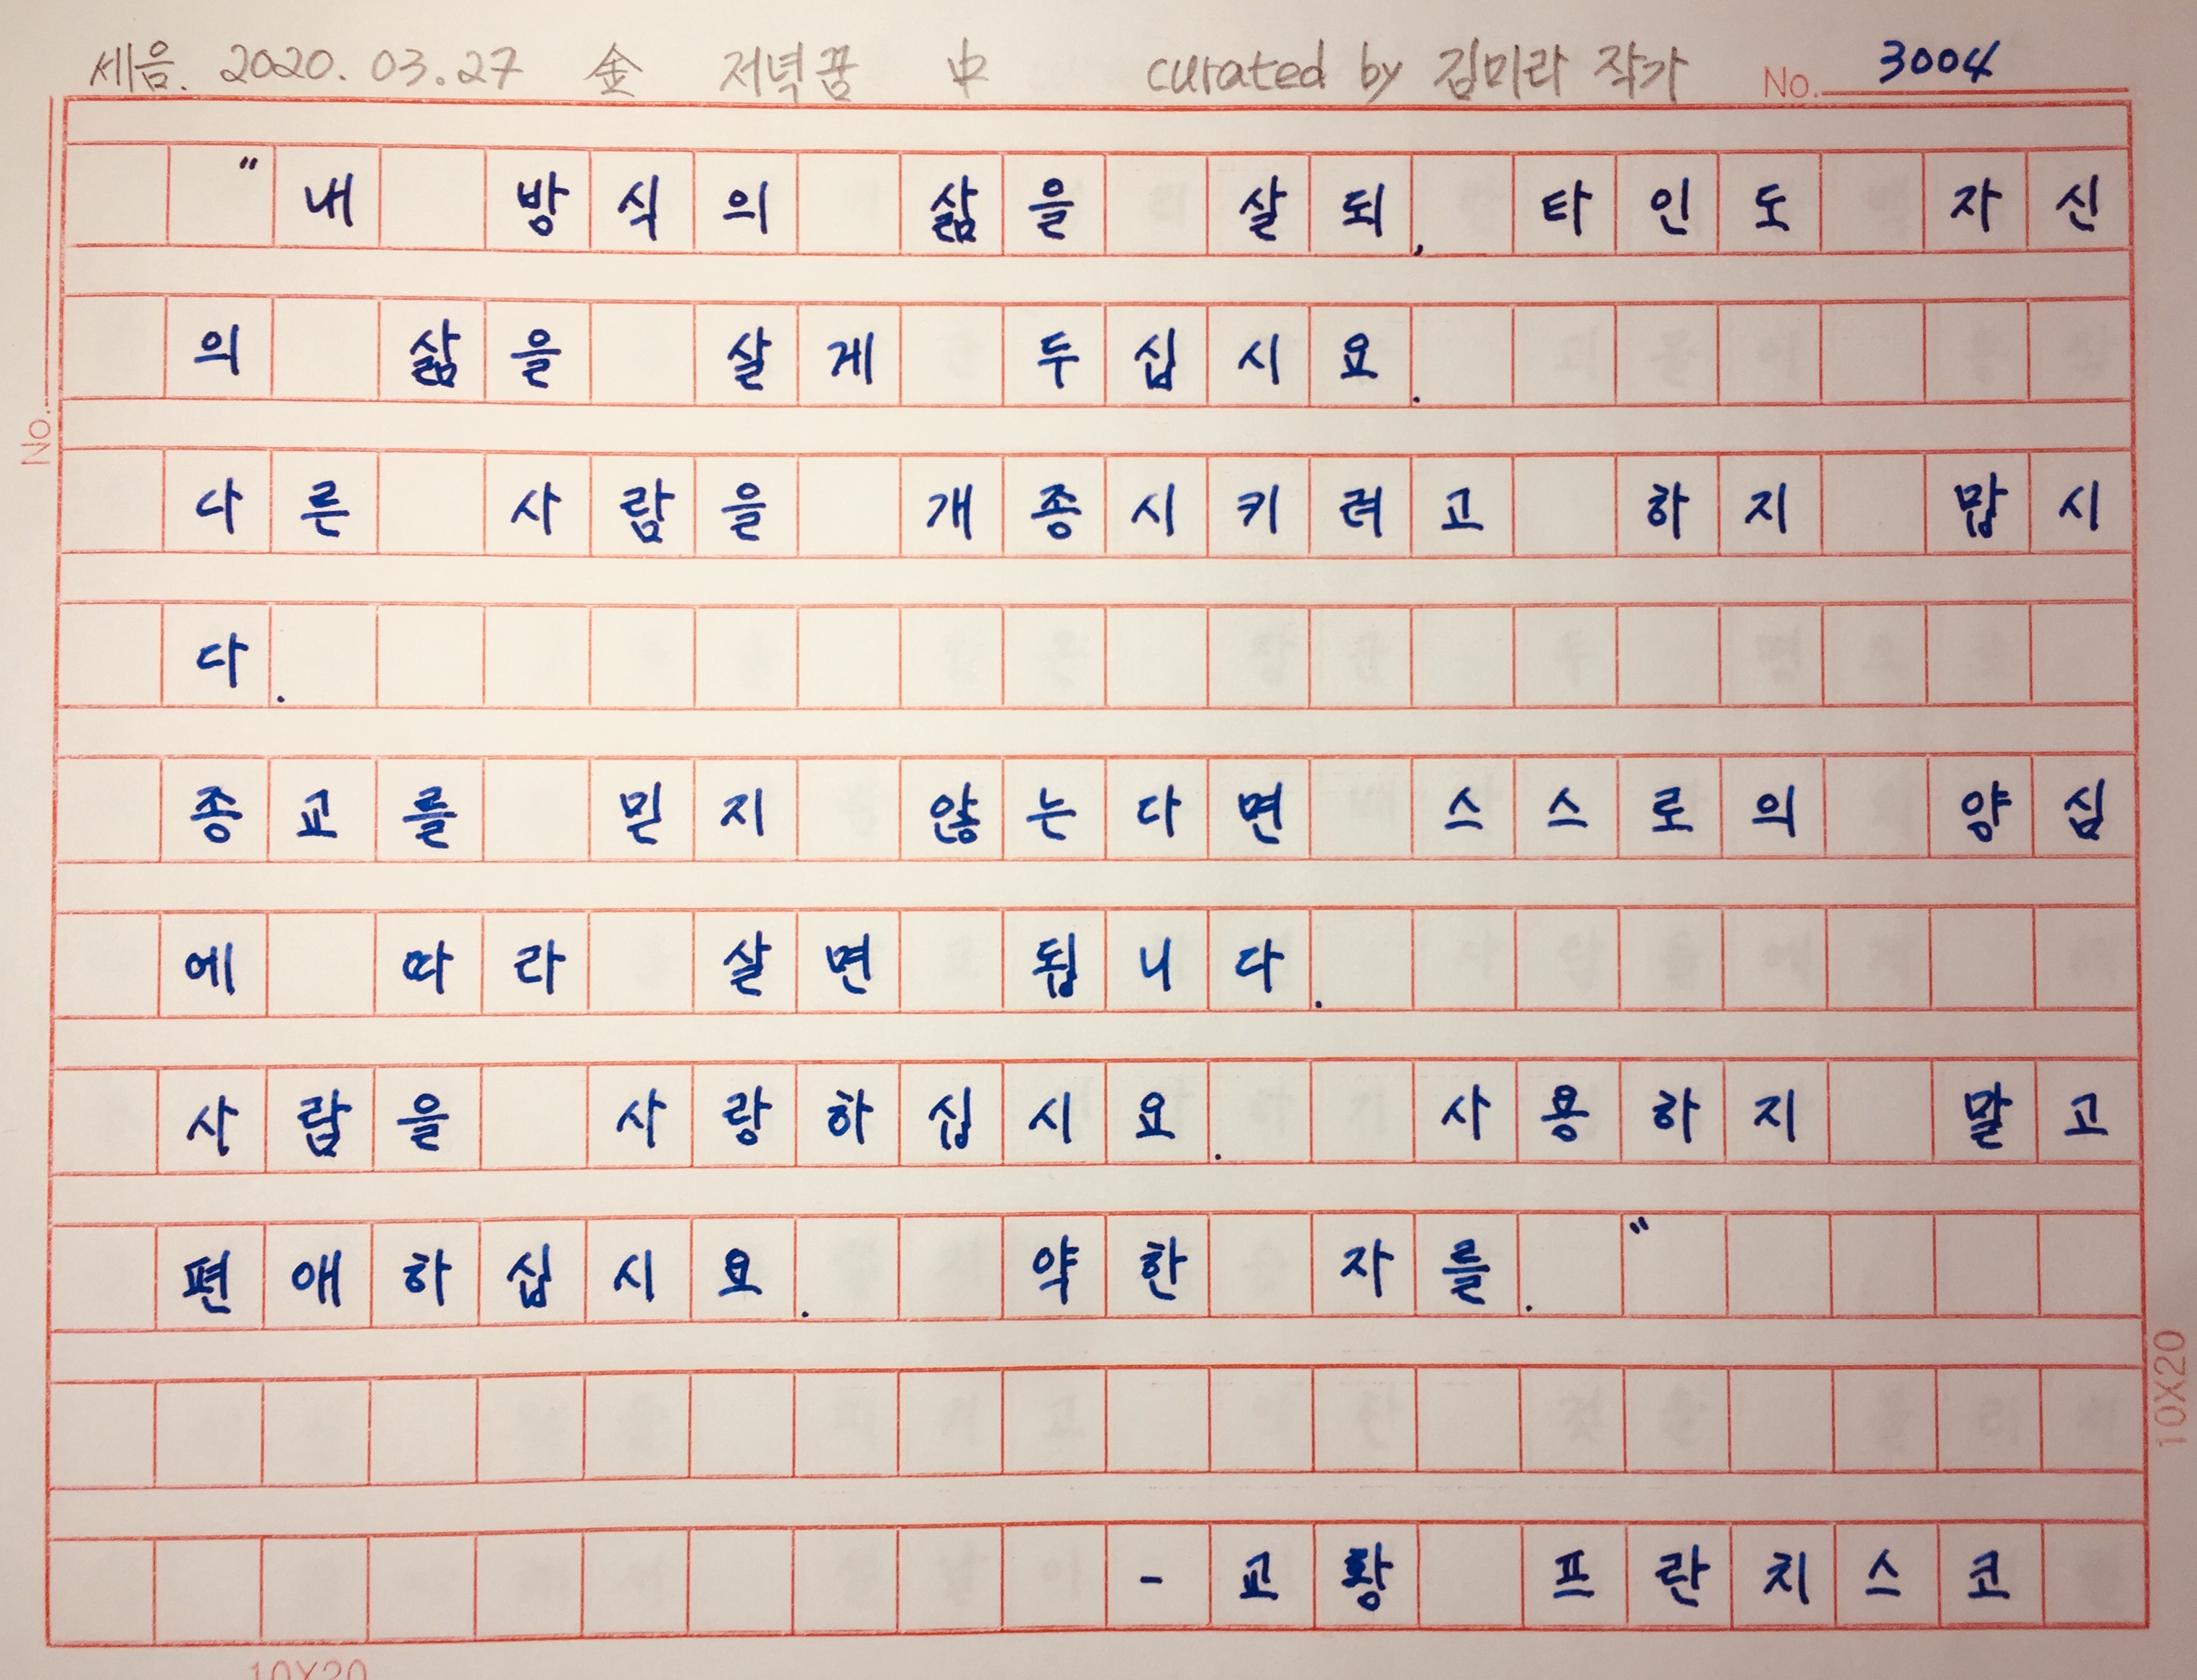 세음. 2020. 03. 27 金 저녁꿈 中 curated by 김미라 작가 No. 3004
"내 방식의 삶을 살되, 타인도 자신
의 삶을 살게 두십시요.
No.
다른 사람을 개종시키려고 하지 맙시
다.
종교를 믿지 않는다면 스스로의 양심
에 따라 살면 됩니다.
사람을 사랑하십시요. 사용하지 말고
편애하십시요. 약한 자를."
10X20
- 교황 프란치스코
10X20